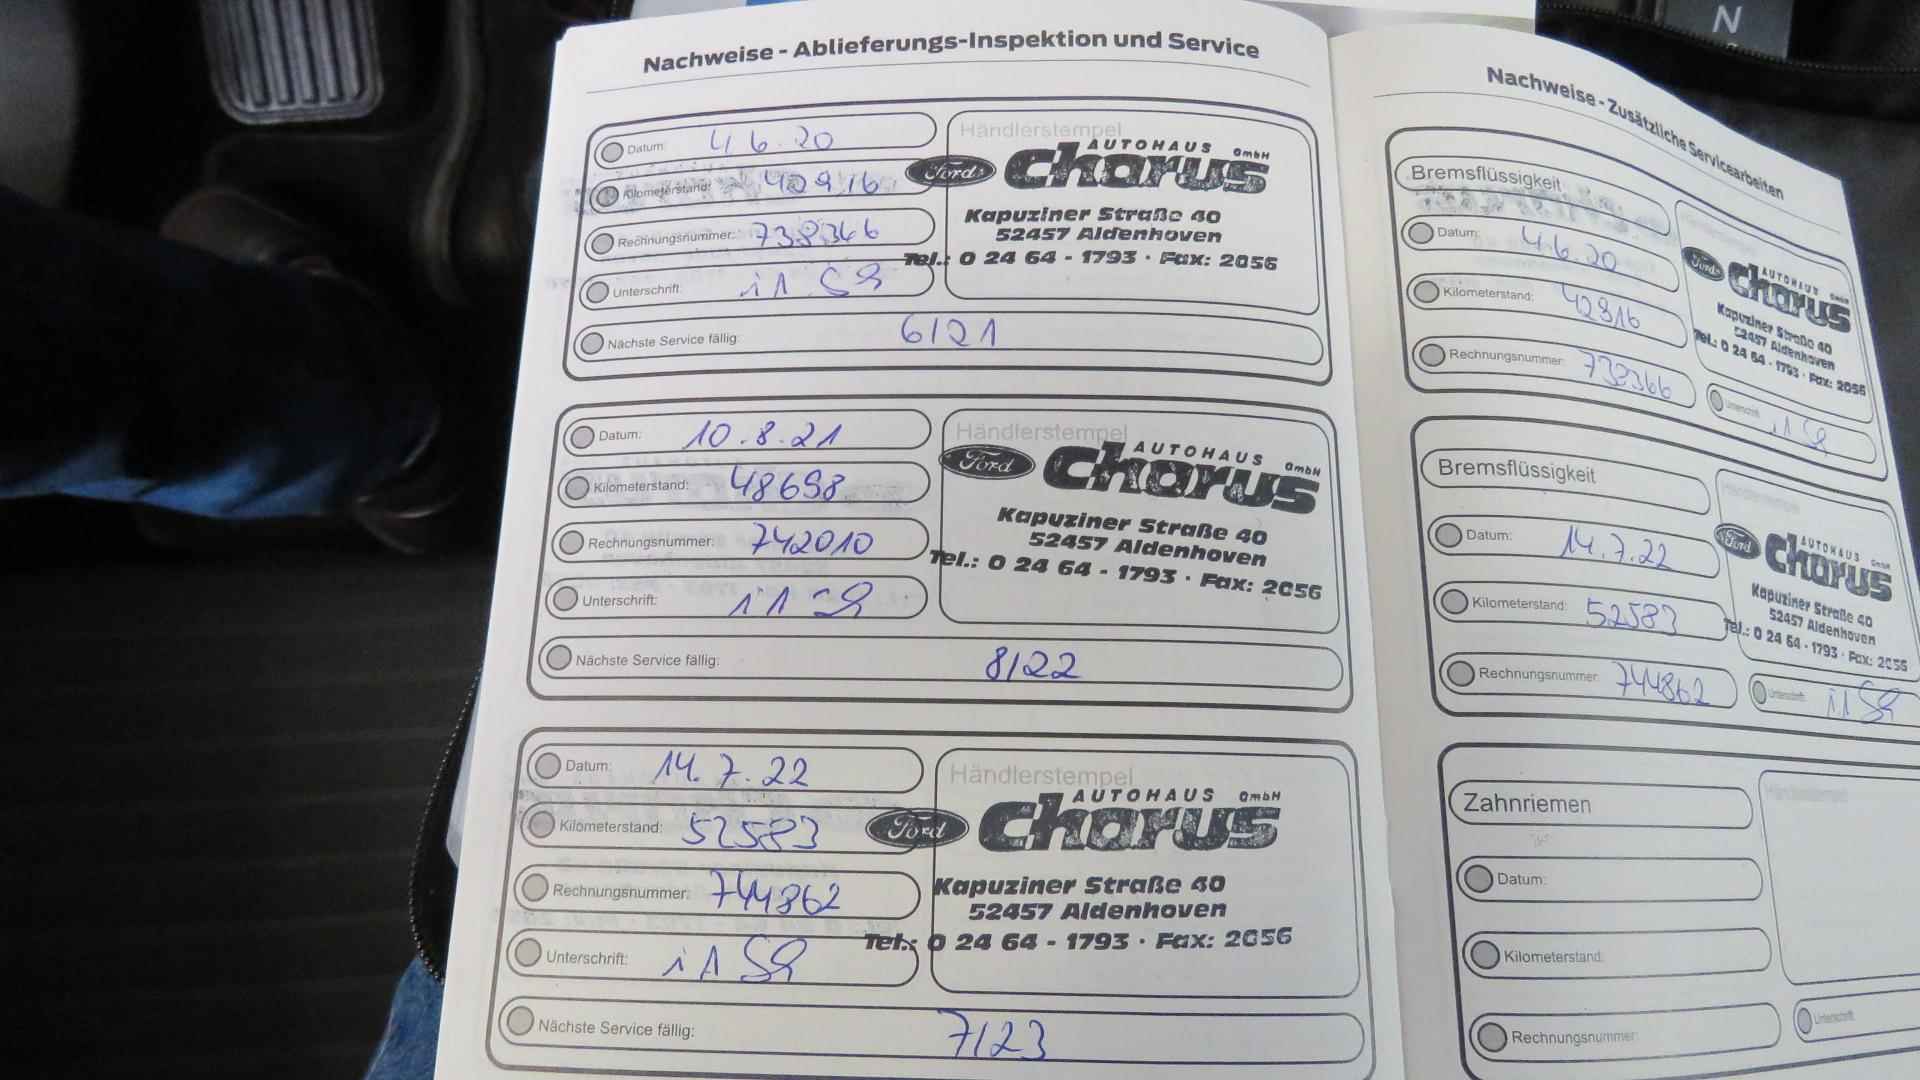 N
Nachweise - Ablieferungs-Inspektion und Service
Datum: 4.6.20
Kilometerstand: 42916
Rechnungsnummer: 738366
Unterschrift:
Nächste Service fällig: 6/21
Händlerstempel
AUTOHAUS GmbH
Ford Charus
Kapuziner Straße 40
52457 Aldenhoven
Tel.: 0 24 64 - 1793 · Fax: 2056
Datum: 10.8.21
Kilometerstand: 48698
Rechnungsnummer: 742010
Unterschrift:
Nächste Service fällig: 8/22
Händlerstempel
AUTOHAUS GmbH
Ford Charus
Kapuziner Straße 40
52457 Aldenhoven
Tel.: 0 24 64 - 1793 · Fax: 2056
Datum: 14.7.22
Kilometerstand: 52583
Rechnungsnummer: 744862
Unterschrift:
Nächste Service fällig: 7/23
Händlerstempel
AUTOHAUS GmbH
Ford Charus
Kapuziner Straße 40
52457 Aldenhoven
Tel.: 0 24 64 - 1793 · Fax: 2056
Nachweise - Zusätzliche Servicearbeiten
Bremsflüssigkeit
Datum: 4.6.20
Kilometerstand: 42916
Rechnungsnummer: 738366
Unterschrift:
AUTOHAUS GmbH
Ford Charus
Kapuziner Straße 40
52457 Aldenhoven
Tel.: 0 24 64 - 1793 · Fax: 2056
Bremsflüssigkeit
Datum: 14.7.22
Kilometerstand: 52583
Rechnungsnummer: 744862
Unterschrift:
Händlerstempel
AUTOHAUS GmbH
Ford Charus
Kapuziner Straße 40
52457 Aldenhoven
Tel.: 0 24 64 - 1793 · Fax: 2056
Zahnriemen
Datum:
Kilometerstand:
Rechnungsnummer:
Unterschrift:
Händlerstempel